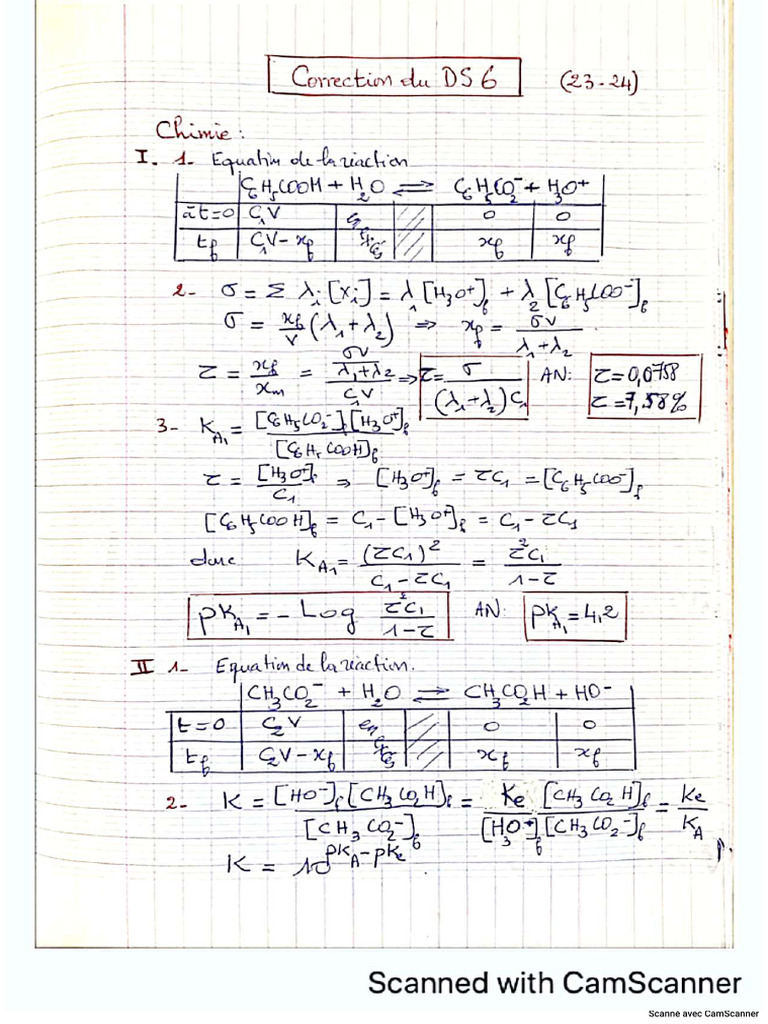 Correction du DS 6 (23-24)
Chimie :
I. 1- Equation de la réaction
C₆H₅COOH + H₂O ⇌ C₆H₅CO₂⁻ + H₃O⁺
à t=0 C₁V en 0 0
t_f C₁V - x_f excès x_f x_f
2- σ = Σ λᵢ[Xᵢ] = λ₁[H₃O⁺]_f + λ₂[C₆H₅COO⁻]_f
σ = x_f/V (λ₁+λ₂) ⇒ x_f = σV/(λ₁+λ₂)
τ = x_f/x_m = (σV/(λ₁+λ₂))/(C₁V) ⇒ τ = σ/((λ₁+λ₂)C₁) AN: τ = 0,0758
τ = 7,58%
3- K_A₁ = [C₆H₅CO₂⁻]_f[H₃O⁺]_f/[C₆H₅COOH]_f
τ = [H₃O⁺]_f/C₁ ⇒ [H₃O⁺]_f = τC₁ = [C₆H₅COO⁻]_f
[C₆H₅COOH]_f = C₁ - [H₃O⁺]_f = C₁ - τC₁
donc K_A₁ = (τC₁)²/(C₁ - τC₁) = τ²C₁/(1-τ)
pK_A₁ = - Log τ²C₁/(1-τ) AN: pK_A₁ = 4,2
II 1- Equation de la réaction.
CH₃CO₂⁻ + H₂O ⇌ CH₃CO₂H + HO⁻
t=0 C₂V en 0 0
t_f C₂V - x_f excès x_f x_f
2- K = [HO⁻]_f[CH₃CO₂H]_f/[CH₃CO₂⁻]_f = Ke/[H₃O⁺]_f [CH₃CO₂H]_f/[CH₃CO₂⁻]_f = Ke/K_A
K = 10^(pK_A - pKe)
Scanned with CamScanner
Scanné avec CamScanner